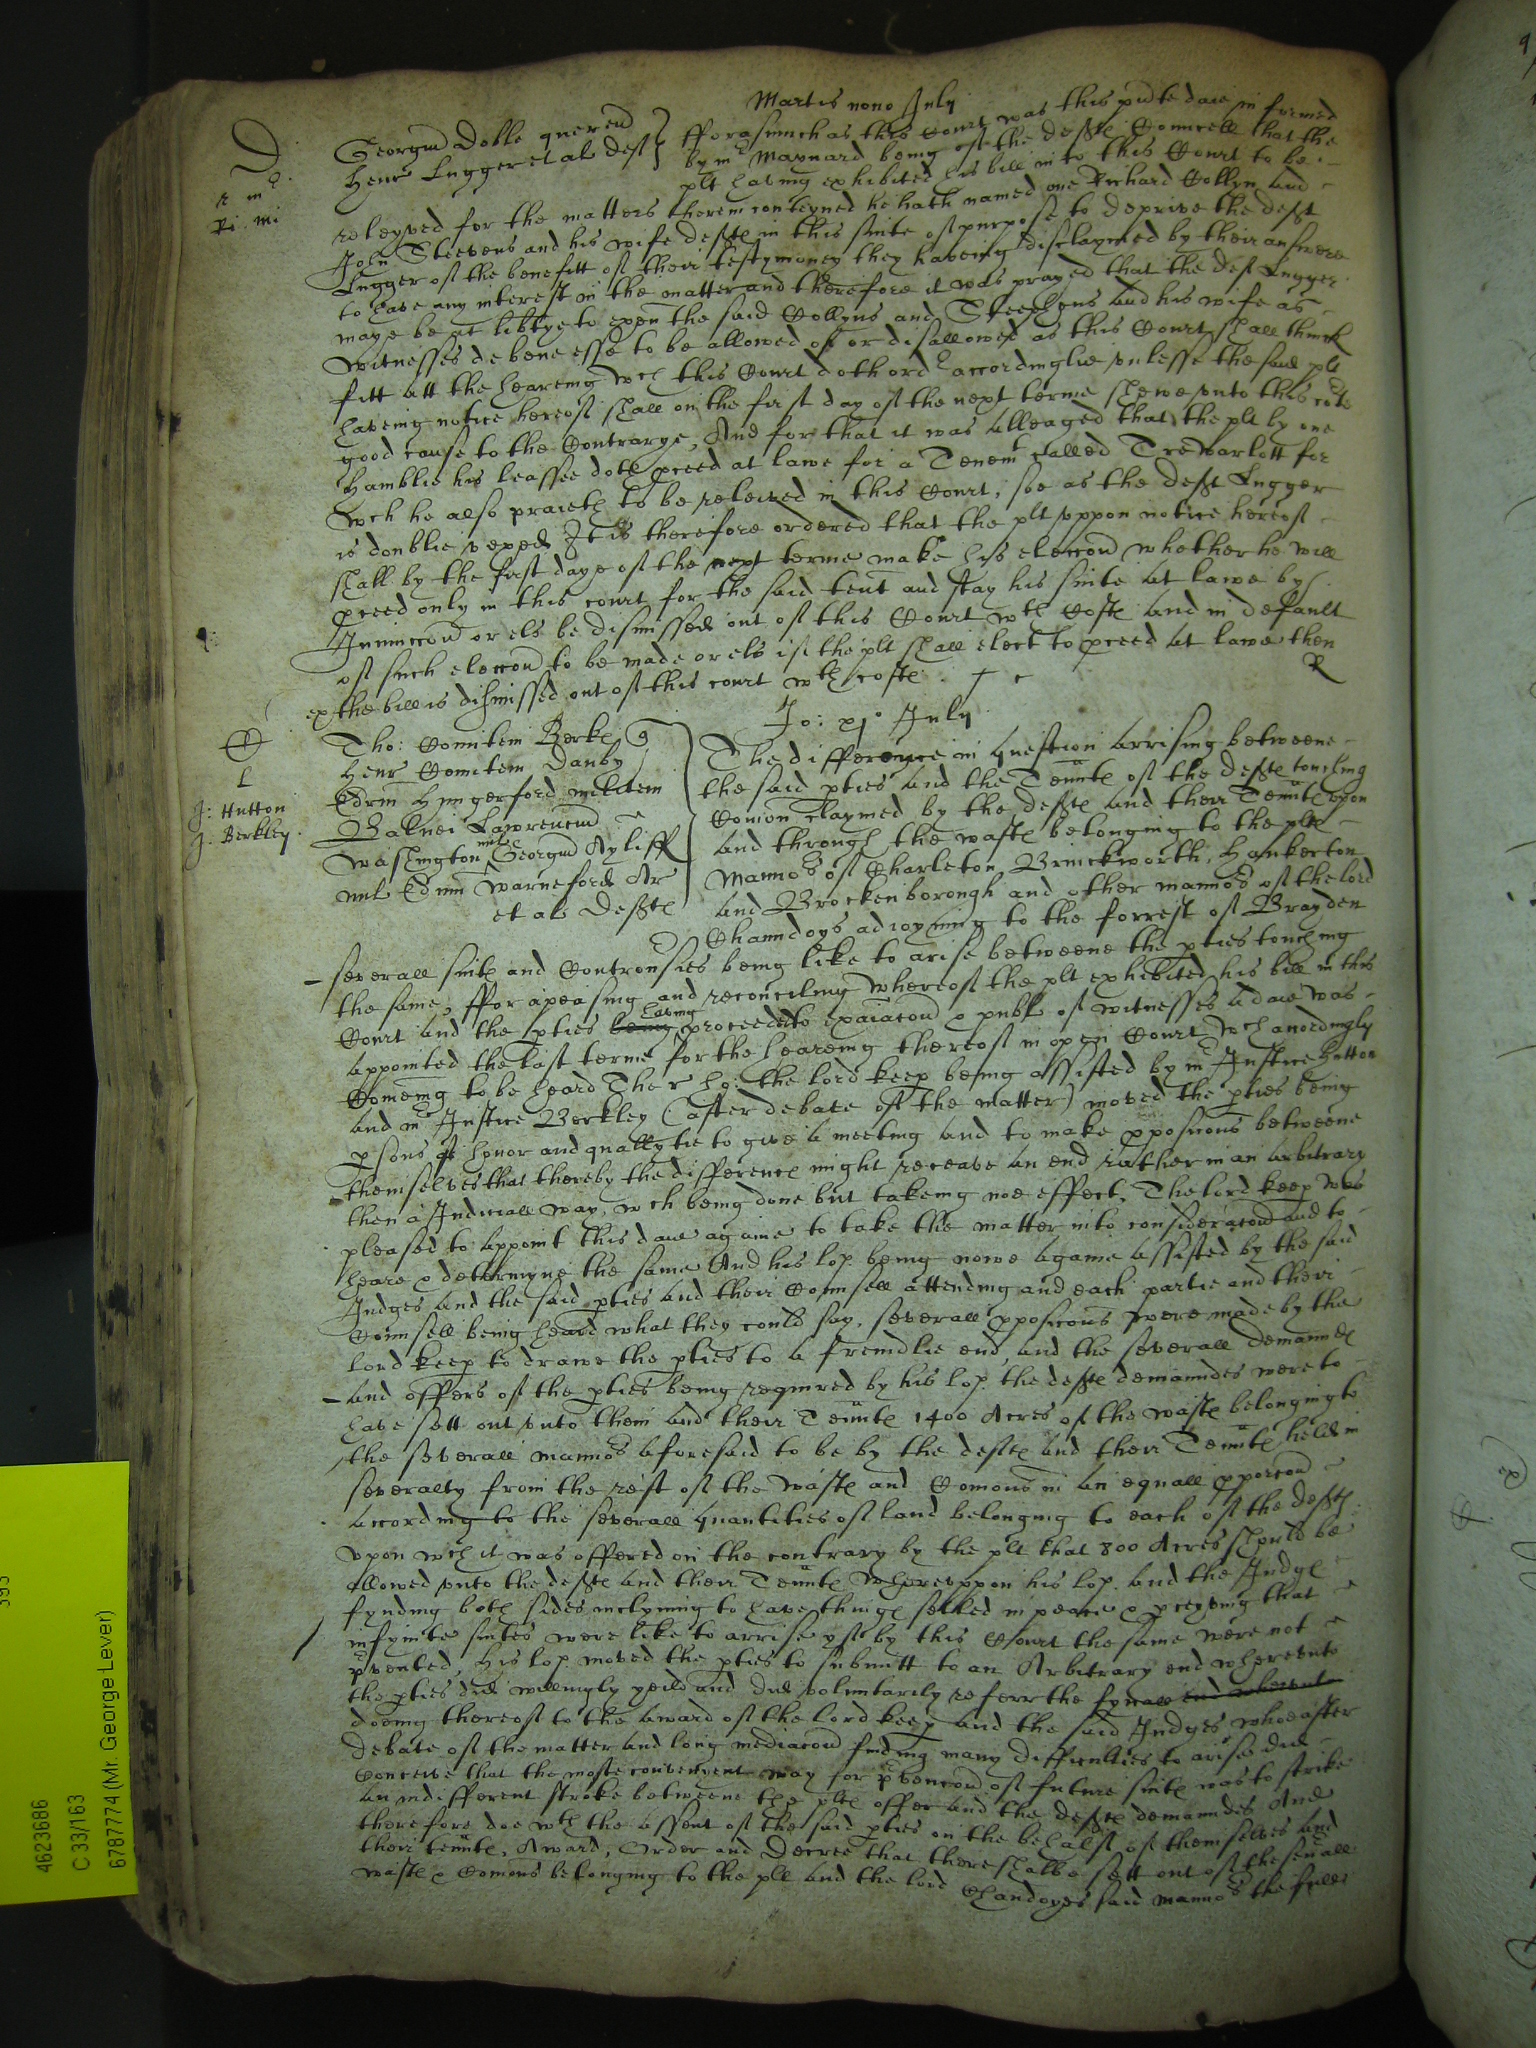 Martis nono July
D
r m r
Ri: Mi
Georgiu Doble queren
Henr Lugger et al deft
fforasmuch as this Court was this pnte daie informed
by mr Maynard being of the defte Councell that the
plt having exhibited his bill into this Court to be
releyved for the matters therein conteyned he hath named one Richard Collyn and
John Steevens and his wife defte in this suite of purpose to deprive the deft
Lugger of the benefitt of their testymoney they haveing disclaymed by their answere
to have any interest in the matter and therefore it was prayed that the deft Lugger
maye be at libtye to exen the said Collyns and Steephens and his wife as
witnesses de bene esse to be allowed of or disallowed as this Court shall thinck
fitt att the heareing wch this Court doth ord accordinglie unlesse the said plt
haveing notice hereof shall on the first day of the next terme shewe unto this cote
good cause to the Contrarye, And for that it was alleaged that the plt by one
Hamblie his leassee doth pceed at lawe for a Tenemt called Trewarlott for
wch he also praieth to be releived in this Court, soe as the deft Lugger
is doublie vexed It is therefore ordered that the plt uppon notice hereof
shall by the first daye of the next terme make his eleccon whether he will
pceed only in this court for the said tent and stay his suite at lawe by
Iniunccon or els be dismissed out of this Court wth Coste and in default
of such eleccon to be made or els if the plt shall elect to pceed at lawe then
ex the bill is dismissed out of this court wth coste
R
Jo: xjo July
C
L
J: Hutton
J: Berkley
Tho: Comitem Berke q
Henr Comitem Danby
Edrm Hungerford militem
Balnei Lawrenciu
Washington mil Georgiu Ayliff
mil Edmu Warneford Ar
et al Defte
The difference in question arrising betweene
the said pties and the Tennte of the defte touching
Comon claymed by the defte and their Tennte upon
and through the waste belonging to the plte
Mannors of Charleton Brinckworth, Hankerton
and Brockenborough and other mannors of the lord
Channdoys adioyning to the forrest of Brayden
severall suite and Controusies being like to arise betweene the pties touching
the same, ffor apeasing and reconciling whereof the plt exhibited his bill in this
Court and the pties being having proceeded to exaiacon & publ of witnesses a daie was
appointed the last terme for the heareing thereof in open Court wch accordingly
Comeing to be heard The r ho: the lord keep being assisted by mr Justice Hutton
and mr Justice Berkley (after debate of the matter) moved the pties being
psons of honor and quallytie to give a meeting and to make pposicons betweene
themselves that thereby the difference might receave an end rather in an arbitrary
then a Judiciall way, wch being done but takeing noe effect, The lord keep was
pleased to appoint this daie againe to take the matter into consideracon and to
heare & determyne the same And his lop being nowe againe assisted by the said
Judges and the said pties and their Counsell attending and each partie and their
Counsell being heard what they could say, severall pposicons were made by the
lord keep to drawe the pties to a freindlie end, and the severall demannde
and offers of the pties being required by his lop. the defte demanndes were to
have sett out unto them and their Tennte 1400 Acres of the waste belonging to
the severall mannors aforesaid to be by the defte and their Tennte held in
severalty from the rest of the waste and Comons in an equall pporcon
according to the severall quantities of land belonging to each of the defte
Upon wch it was offered on the contrary by the plt that 800 Acres should be
allowed unto the defte and their Tennte Whereuppon his lop. and the Judge
fynding both sides inclyning to have thinge setled in peace & pceyving that
infynite suites were like to arrise yf by this Court the same were not
pvented, His lop. moved the pties to submitt to an Arbitrary end whereunto
the pties did willingly yeild and did voluntarily referr the fynall end whereunto
doeing thereof to the award of the lord keep and the said Judges whoe after
debate of the matter and long mediacon finding many difficulties to arise did
Conceive that the moste convenyent way for pvencon of future suite was to strike
an indifferent stroke betweene the plte offer and the defte demanndes And
therefore doe wth the assent of the said pties on the behalf of themselves and
their tennte, Award, Order and Decree that there shalbe sett out of the seuall
waste & Comons belonging to the plt and the lord Chandoyes said mannors the full
4623686
C 33/163
6787774 (Mr. George Lever)